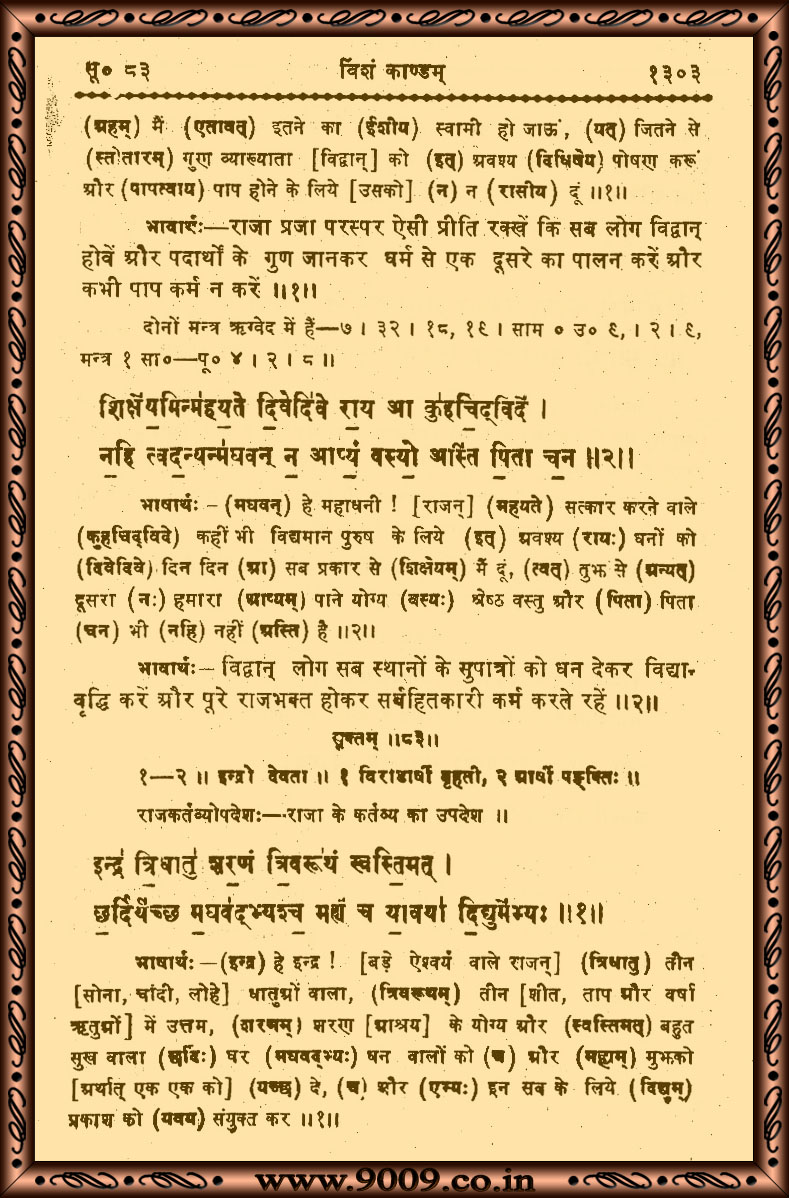 सू० ८३ विंशं काण्डम् १३०३
(अहम्) मैं (एतावत्) इतने का (ईशीय) स्वामी हो जाऊं, (यत्) जितने से
(स्तोतारम्) गुण व्याख्याता [विद्वान्] को (इत्) अवश्य (दिधिषेय) पोषण करूं
और (पापत्वाय) पाप होने के लिये [उसको] (न) न (रासीय) दूं ॥१॥
भावार्थः—राजा प्रजा परस्पर ऐसी प्रीति रक्खें कि सब लोग विद्वान्
होवें और पदार्थों के गुण जानकर धर्म से एक दूसरे का पालन करें और
कभी पाप कर्म न करें ॥१॥
दोनों मन्त्र ऋग्वेद में हैं—७ । ३२ । १८, १९ । साम ० उ० ९, । २ । ९,
मन्त्र १ सा०—पू० ४ । २ । ८ ॥
शिक्षे॑य॒मिन्म॑हय॒ते दि॒वेदि॑वे रा॒य आ कु॑हचि॒द्विदे॑ ।
न॒हि त्वद॒न्यन्म॑घवन् न॒ आप्यं॒ वस्यो॒ अस्ति॑ पि॒ता च॒न ॥२॥
भाषार्थः – (मघवन्) हे महाधनी ! [राजन्] (महयते) सत्कार करने वाले
(कुहचिद्विदे) कहीं भी विद्यमान पुरुष के लिये (इत्) अवश्य (रायः) धनों को
(दिवेदिवे) दिन दिन (आ) सब प्रकार से (शिक्षेयम्) मैं दूं, (त्वत्) तुझ से (अन्यत्)
दूसरा (नः) हमारा (आप्यम्) पाने योग्य (वस्यः) श्रेष्ठ वस्तु और (पिता) पिता
(चन) भी (नहि) नहीं (अस्ति) है ॥२॥
भावार्थः— विद्वान् लोग सब स्थानों के सुपात्रों को धन देकर विद्या-
वृद्धि करें और पूरे राजभक्त होकर सर्वहितकारी कर्म करते रहें ॥२॥
सूक्तम् ॥८३॥
१—२ ॥ इन्द्रो देवता ॥ १ विराडार्षी बृहती, २ आर्षी पङ्क्तिः ॥
राजकर्तव्योपदेशः—राजा के कर्तव्य का उपदेश ॥
इन्द्र॑ त्रि॒धातु॑ शर॒णं त्रि॒वरू॑थं स्वस्ति॒मत् ।
छ॒र्दिर्य॑च्छ म॒घव॑द्भ्यश्च॒ मह्यं॑ च या॒वया॑ दि॒द्युमे॑भ्यः ॥१॥
भाषार्थः —(इन्द्र) हे इन्द्र ! [बड़े ऐश्वर्य वाले राजन्] (त्रिधातु) तीन
[सोना, चांदी, लोहे] धातुओं वाला, (त्रिवरूथम्) तीन [शीत, ताप और वर्षा
ऋतुओं] में उत्तम, (शरणम्) शरण [आश्रय] के योग्य और (स्वस्तिमत्) बहुत
सुख वाला (छर्दिः) घर (मघवद्भ्यः) धन वालों को (च) और (मह्यम्) मुझको
[अर्थात् एक एक को] (यच्छ) दे, (च) और (एभ्यः) इन सब के लिये (दिद्युम्)
प्रकाश को (यवय) संयुक्त कर ॥१॥
www.9009.co.in